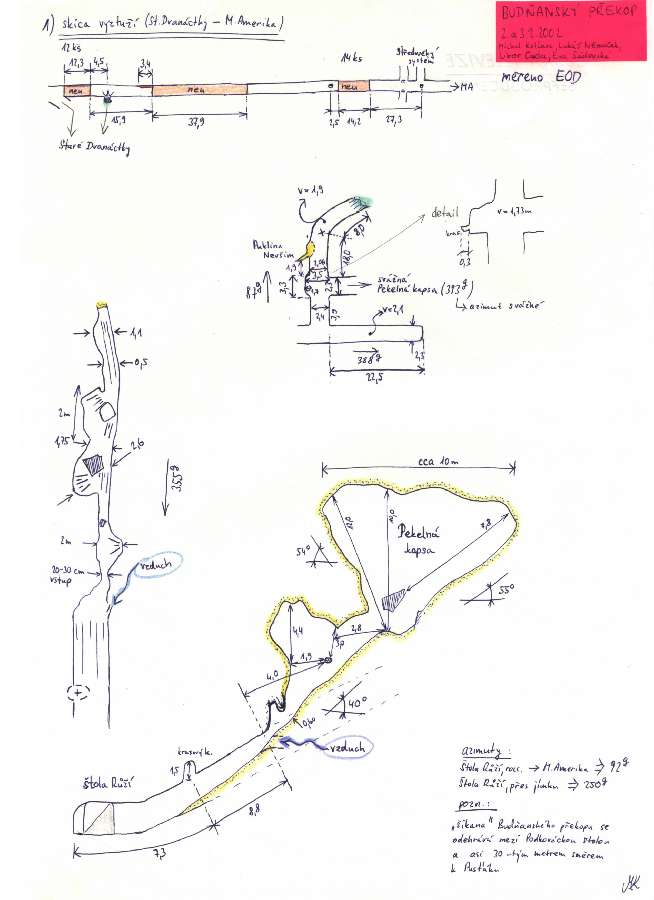 1) skica výztuží (St. Dvanáctky – M. Amerika)
BUDŇANSKÝ PŘEKOP
2. a 3.1.2002
měřeno EOD
12 ks
12,3
4,5
3,4
14 ks
Středověký
systém
neu
neu
neu
MA
15,9
37,9
2,5
14,2
27,3
Staré Dvanáctky
v=1,9
detail
v=1,73m
8,0
18,0
0,3
Puklina
Nevšim
1,9
3,3
87g
svážná
Pekelná kapsa (393g)
azimut svážné
2,4
3,9
v=2,1
388g
2,5
22,5
1,1
0,5
2m
1,75
2,6
355g
2m
20-30 cm
vstup
vzduch
cca 10m
Pekelná
kapsa
8,8
54°
55°
4,4
2,8
1,9
4,0
40°
vzduch
1,5
Štola Růží
8,8
7,3
azimuty:
Štola Růží, rozc. → M. Amerika ⇒ 92g
Štola Růží, přes jímku ⇒ 250g
pozn.:
„šikana" Budňanského překopu se
odehrává mezi Podkováckou štolou
a asi 30-tým metrem směrem
k Pusťáku
MK